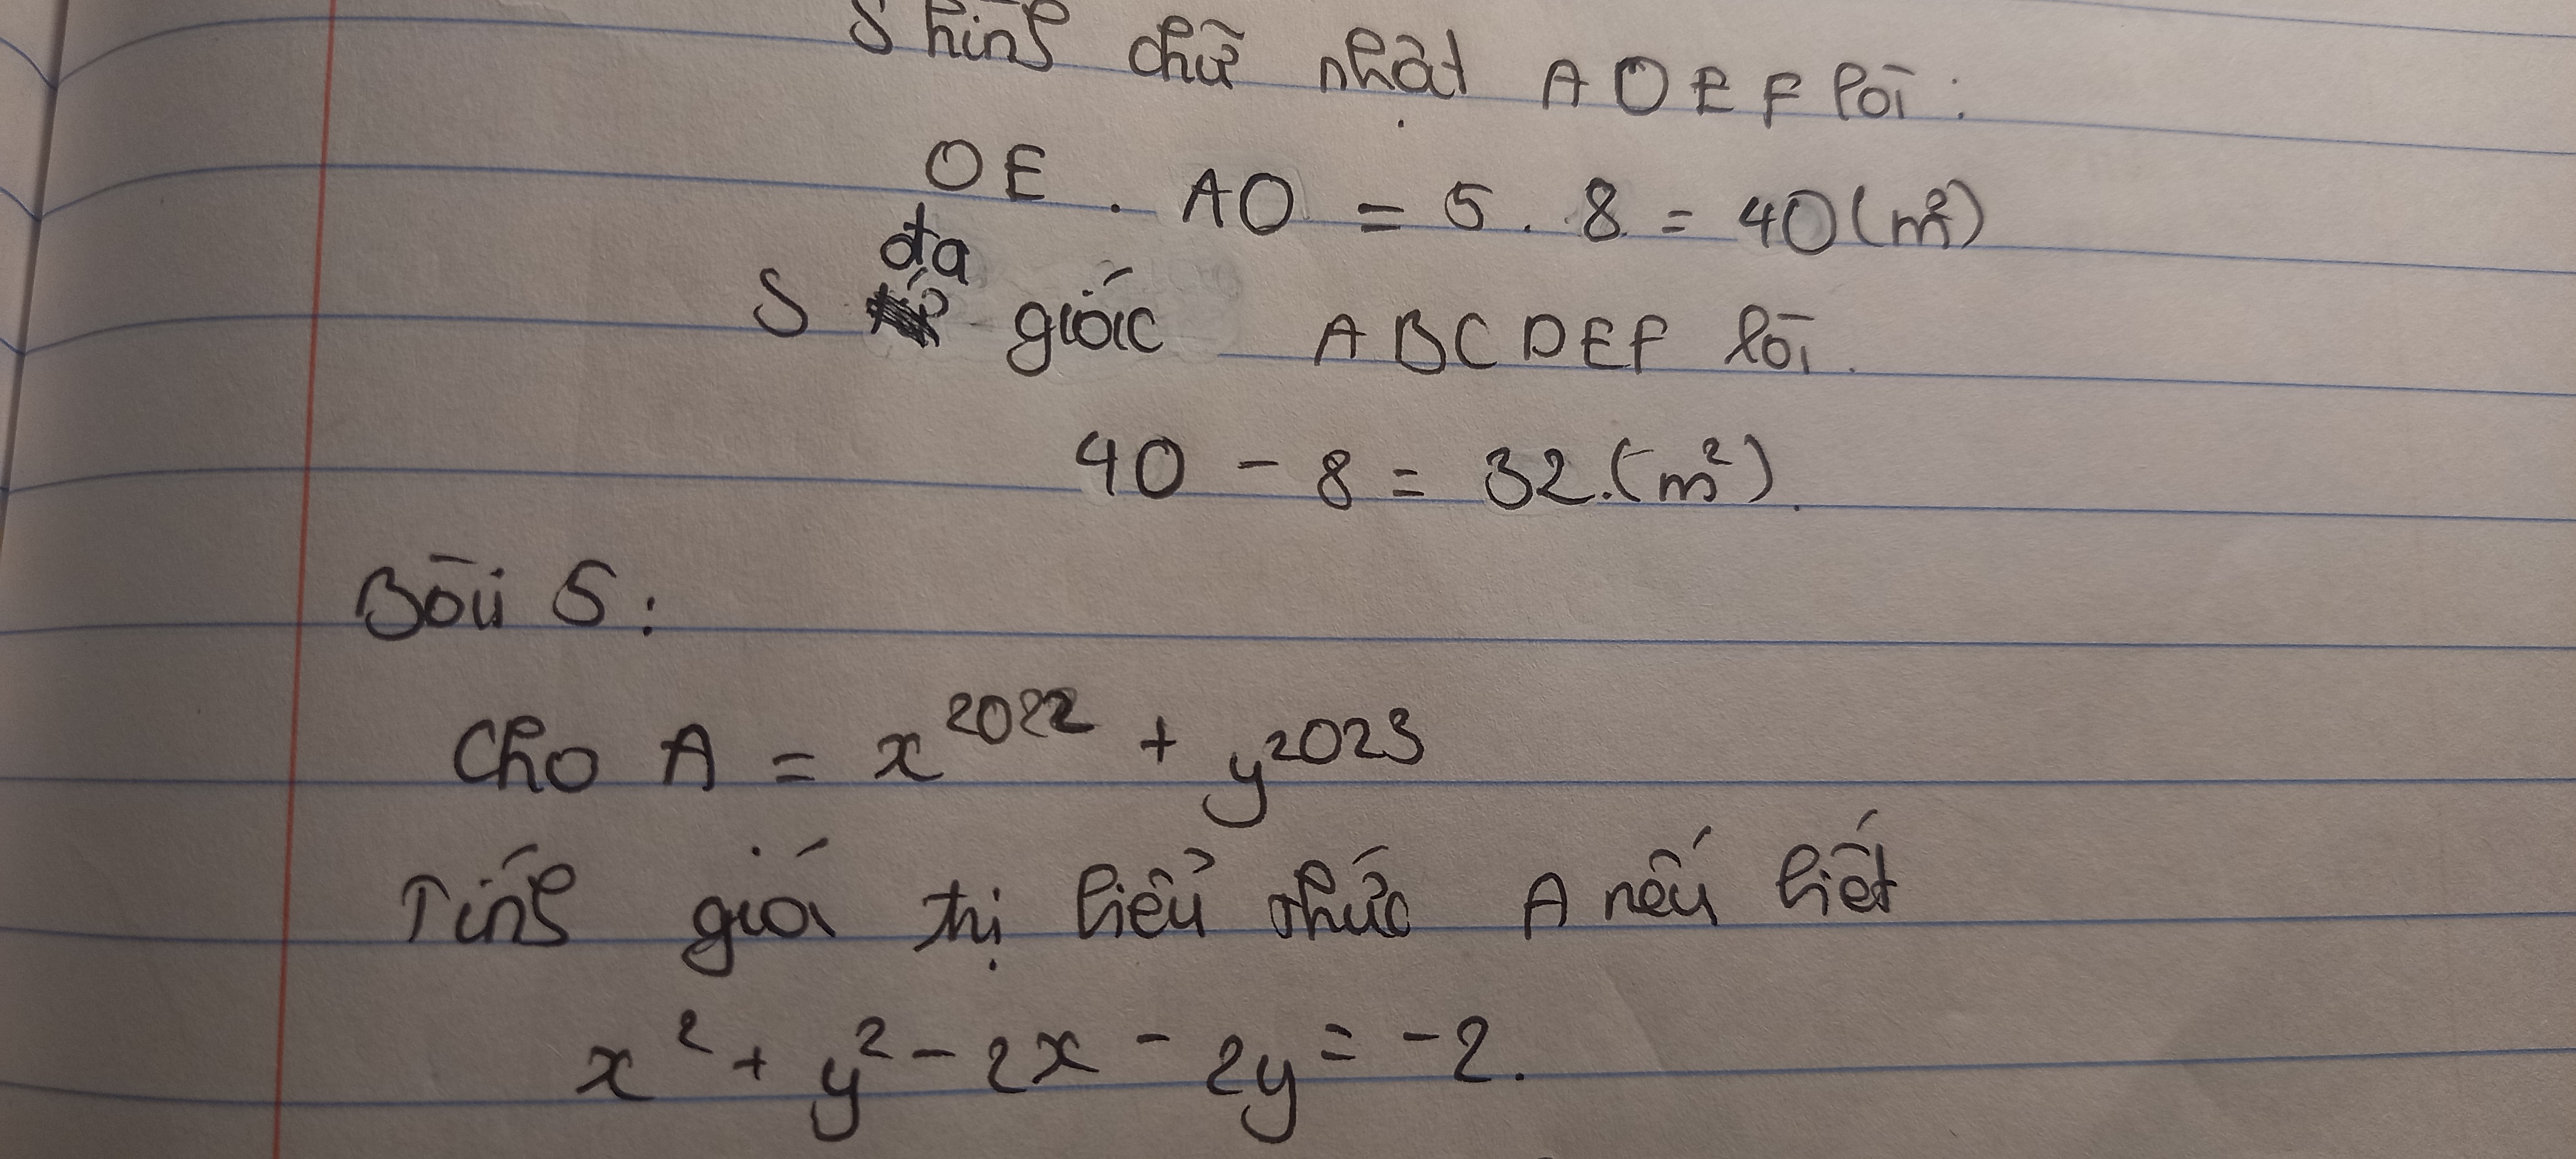 S hình chữ nhật AOEF là:
OE . AO = 5 . 8 = 40 (m²)
S đa giác ABCDEF là.
40 - 8 = 32. (m²).
Bài 5:
Cho A = x²⁰²² + y²⁰²³
Tính giá thị biểu thức A nếu biết
x² + y² - 2x - 2y = -2.